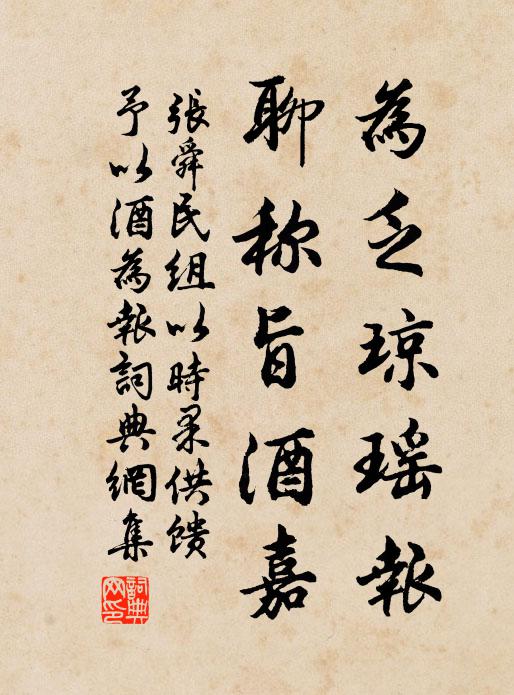 為乏琼瑶報
聊称旨酒嘉
張舜民組以時果供馈
予以酒為報詞典網集
詞典網印